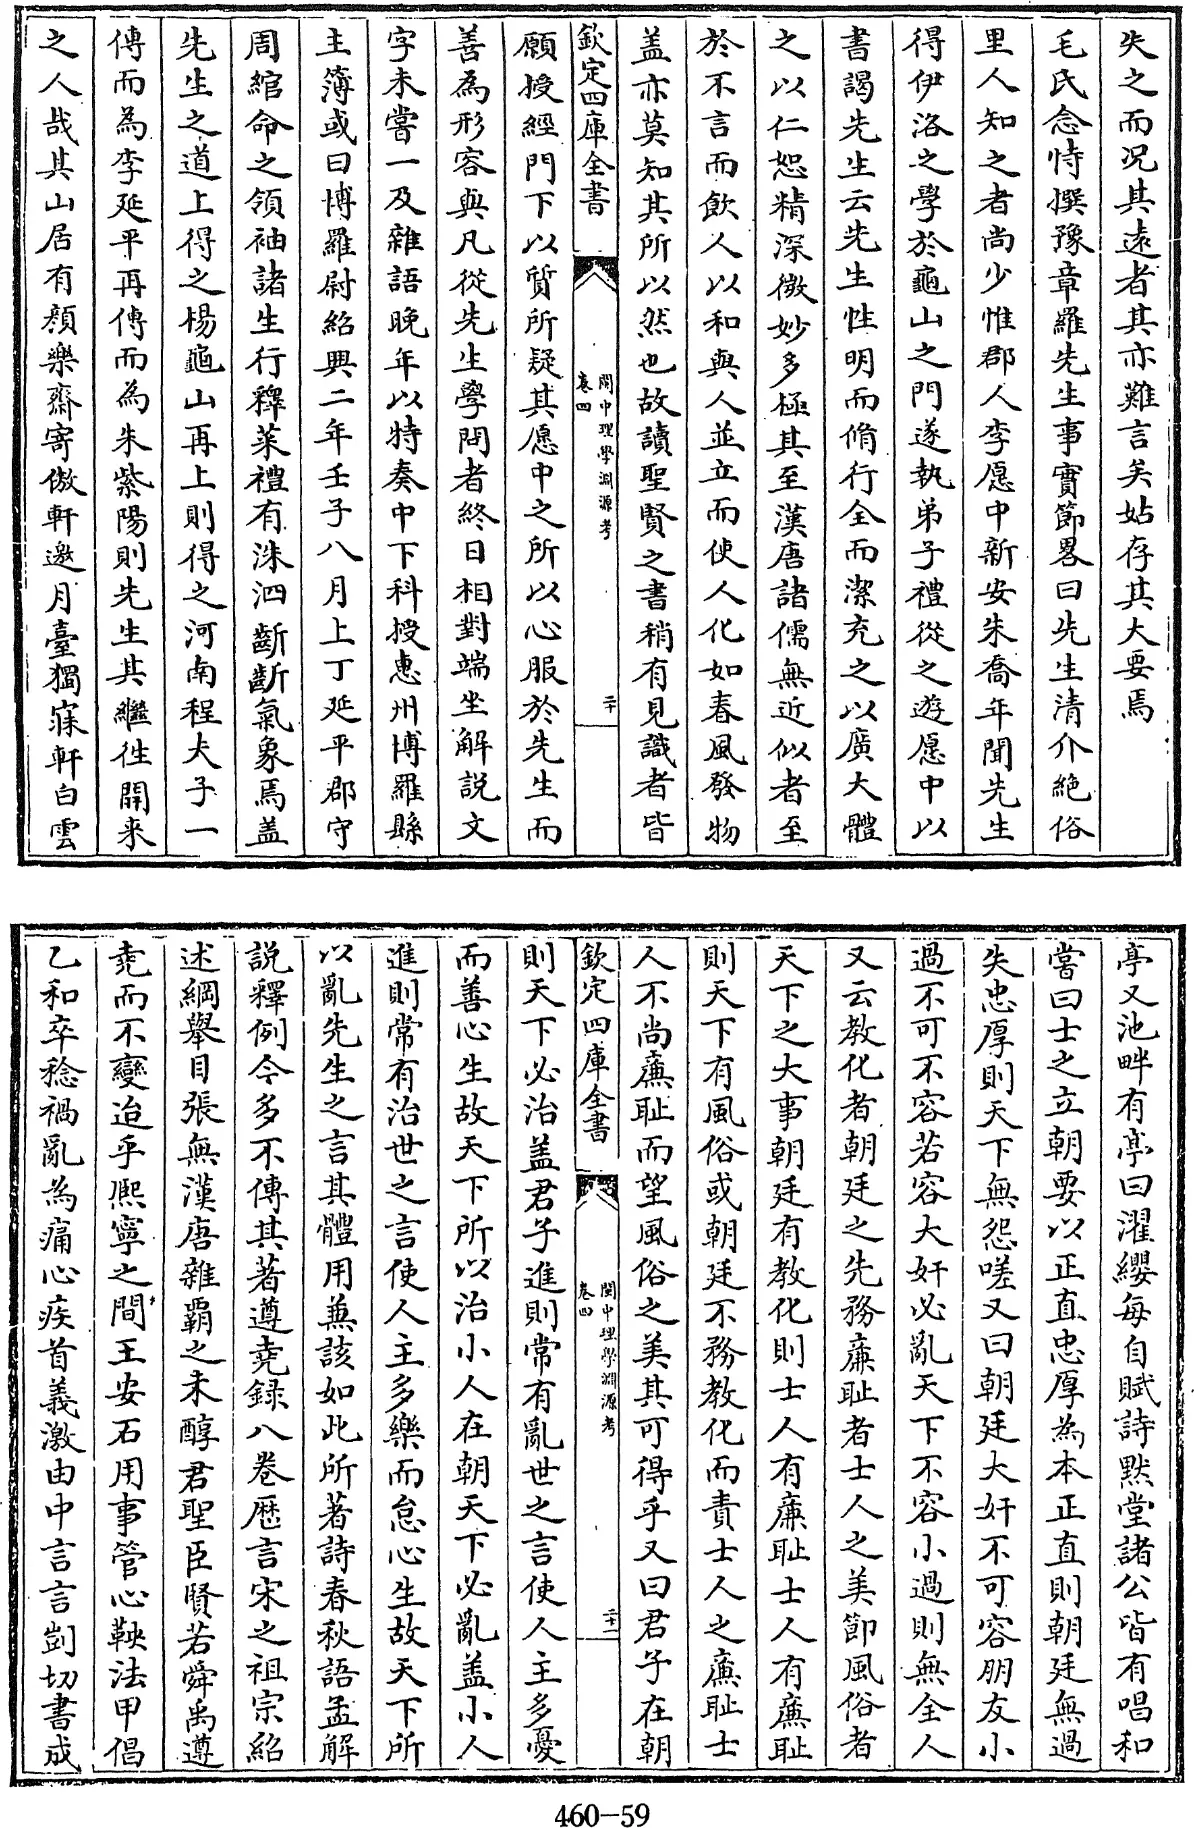 失之而况其遠者其亦難言矣姑存其大要焉
毛氏念恃撰豫章羅先生事實節畧曰先生清介絶俗
里人知之者尚少惟郡人李愿中新安朱喬年聞先生
得伊洛之學於龜山之門遂執弟子禮從之遊愿中以
書謁先生云先生性明而脩行全而潔充之以廣大體
之以仁恕精深微妙多極其至漢唐諸儒無近似者至
於不言而飲人以和與人並立而使人化如春風發物
盖亦莫知其所以然也故讀聖賢之書稍有見識者皆
欽定四庫全書 閩中理學淵源考 卷四 二十
願授經門下以質所疑其愿中之所以心服於先生而
善為形容與凡從先生學問者終日相對端坐解説文
字未嘗一及雜語晚年以特奏中下科授惠州博羅縣
主簿或曰博羅尉紹興二年壬子八月上丁延平郡守
周綰命之領袖諸生行釋菜禮有洙泗齗齗氣象焉盖
先生之道上得之楊龜山再上則得之河南程夫子一
傳而為李延平再傳而為朱紫陽則先生其繼徃開來
之人哉其山居有顔樂齋寄傲軒邀月臺獨寐軒白雲
亭又池畔有亭曰濯纓每自賦詩黙堂諸公皆有唱和
嘗曰士之立朝要以正直忠厚為本正直則朝廷無過
失忠厚則天下無怨嗟又曰朝廷大奸不可容朋友小
過不可不容若容大奸必亂天下不容小過則無全人
又云教化者朝廷之先務廉恥者士人之美節風俗者
天下之大事朝廷有教化則士人有廉恥士人有廉恥
則天下有風俗或朝廷不務教化而責士人之廉恥士
人不尚廉恥而望風俗之美其可得乎又曰君子在朝
欽定四庫全書 閩中理學淵源考 卷四 二十一
則天下必治盖君子進則常有亂世之言使人主多憂
而善心生故天下所以治小人在朝天下必亂盖小人
進則常有治世之言使人主多樂而怠心生故天下所
以亂先生之言其體用兼該如此所著詩春秋語孟解
説釋例今多不傳其著遵堯録八卷厯言宋之祖宗紹
述綱舉目張無漢唐雜霸之未醇君聖臣賢若舜禹遵
堯而不變迨乎熈寧之間王安石用事管心鞅法甲倡
乙和卒稔禍亂為痛心疾首義激由中言言剴切書成
460-59